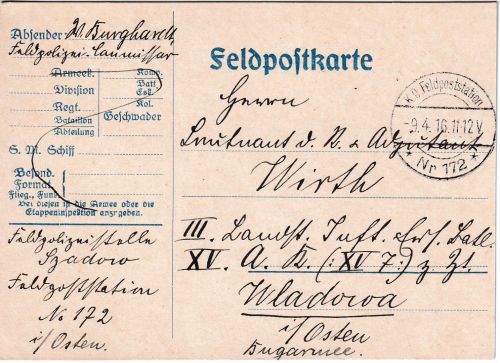 Absender W. Burghardt
Feldpolizei-Commissar
Armeek.
Division
Regt.
Bataillon
Abteilung
Komp.
Batt.
Esk.
Kol.
Geschwader
S. M. Schiff
Besond.
Format.
Flieg., Funk
Bei diesen ist die Armee oder die
Etappeninspektion anzugeben.
Feldpolizeistelle
Szadowo
Feldpoststation
No 172
i/Osten.
Feldpostkarte
K.D. Feldpoststation
-9.4.16.11-12V.
* Nr 172 *
Herrn
Leutnant d. R. & Adjutant
Wirth
III. Landst. Inft. Ers. Batl.
XV. A. K. (: XV 7 :) z. Zt.
Wladowa
i/Osten
Bugarmee.